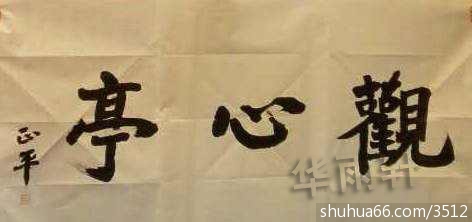 觀心亭
正平
华丽轩
shuhua66.com/3512